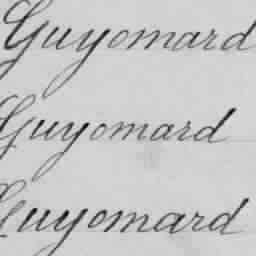 Guyomard
Guyomard
Guyomard